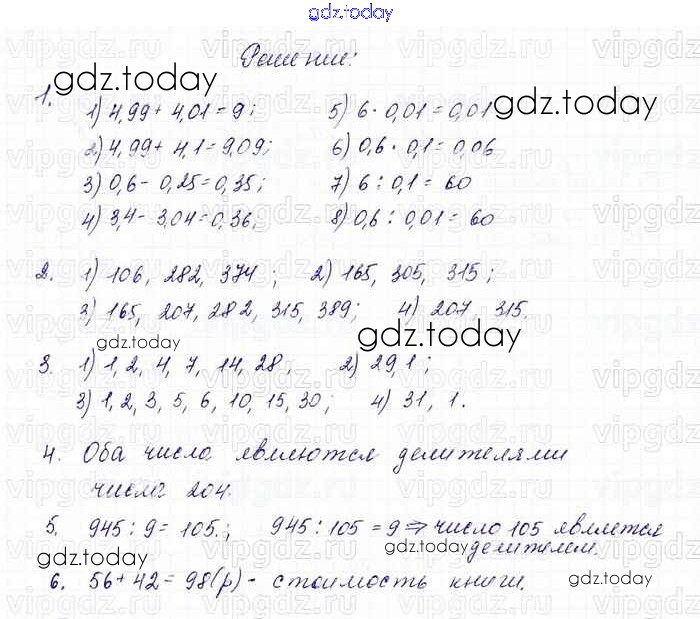 gdz.today
Решение:
gdz.today
1.
1) 4,99 + 4,01 = 9; 5) 6 · 0,01 = 0,01
gdz.today
2) 4,99 + 4,1 = 9,09; 6) 0,6 · 0,1 = 0,06
3) 0,6 - 0,25 = 0,35; 7) 6 : 0,1 = 60
4) 3,4 - 3,04 = 0,36; 8) 0,6 : 0,01 = 60
2. 1) 106, 282, 374; 2) 165, 305, 315;
3) 165, 207, 282, 315, 389; 4) 207, 315.
gdz.today
gdz.today
3. 1) 1, 2, 4, 7, 14, 28; 2) 29, 1;
3) 1, 2, 3, 5, 6, 10, 15, 30; 4) 31, 1.
4. Оба числа являются делителями
числа 204.
5. 945 : 9 = 105.; 945 : 105 = 9 ⇒ число 105 является
делителем.
gdz.today
gdz.today
6. 56 + 42 = 98(р) - стоимость книги.
gdz.today